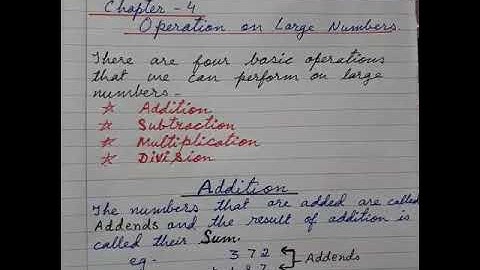 Chapter - 4
Operation on Large Numbers.
There are four basic operations
that we can perform on large
numbers -
☆ Addition
☆ Subtraction
☆ Multiplication
☆ Division
Addition
The numbers that are added are called
Addends and the result of addition is
called their Sum.
eg - 3 7 2
Addends